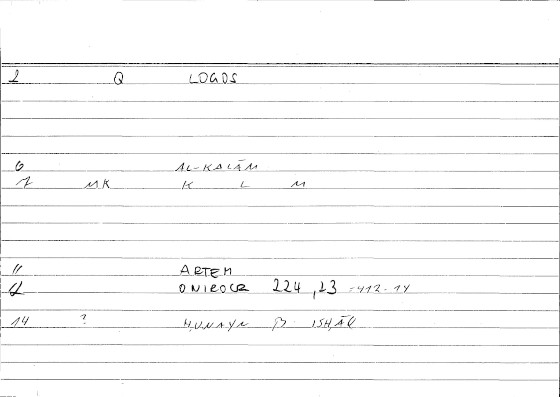 2 Q LOGOS
6 AL-KALĀM
7 MK K L M
11 ARTEM
12 ONIROCR 224,23 =412-14
14 ? ḤUNAYN B ISḤĀQ